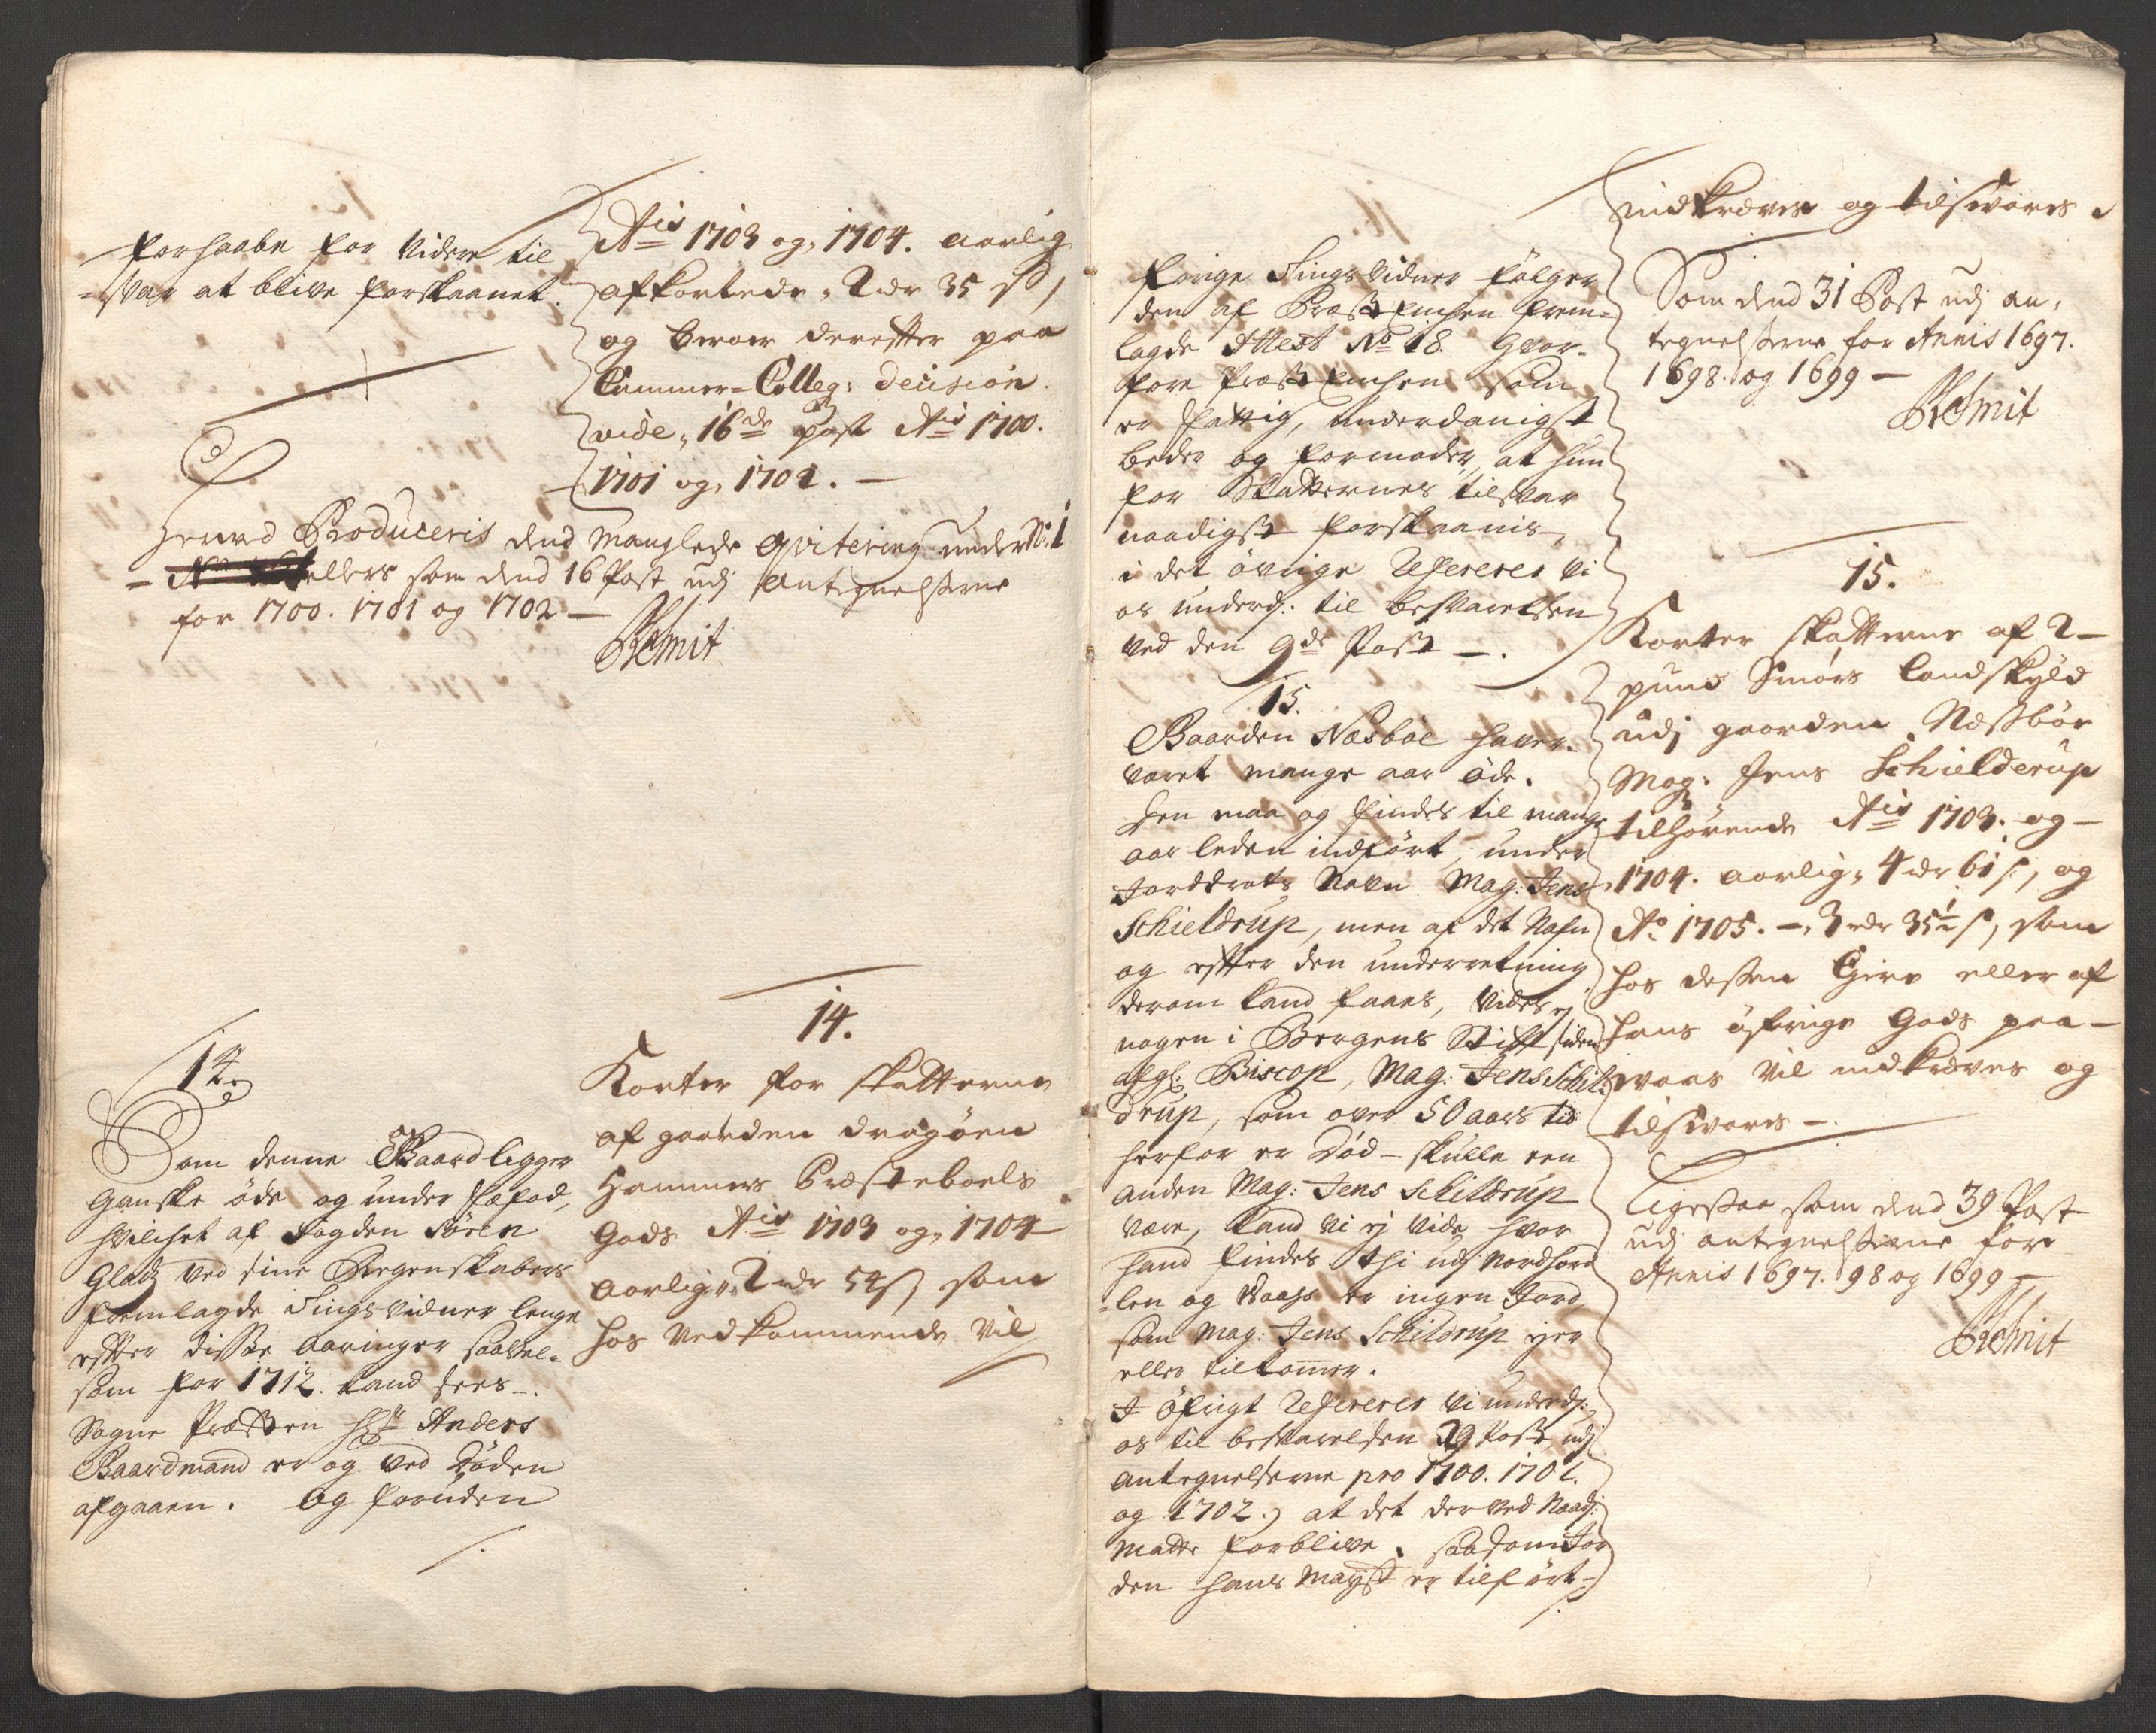 forhaabe for Videre til
=svar at blive forskaanet.
Ais 1703 og 1704. aarlig
afkortede, 2 dr 35 s,
og beroer derefter paa
Cammer=Colleg: Decision.
vide, 16de post Ais 1700.
1701 og 1702. —
Herved Produceris dend Manglede qvitering under No 1
ellers som dend 16 Post udj Antegnelserne
for 1700. 1701 og 1702 —
Schmit
14.
Som denne Gaard ligger
gandske øde og under fæfod,
hvilchet af Fogden Søren
Glad ved sine Regenskabers
fremlagde Tingsvidner lenge
efter disse aaringer saavel=
som for 1712. kand sees —.
Sogne Præsten Hr Anders
Gaardmand er og ved Døden
afgaaen. Og foruden
14.
Korter for skatterne
af gaarden dragøen
Hammers Præsteboels
Gods Ais 1703 og 1704 —
aarlig 2 dr 54 s, som
hos Vedkommende Vil
forige Tingsvidner følger
den af Præst Enchen frem=
lagde Attest No 18. hvor=
fore Præst Enchen som
er fattig, underdanigst
beder og formoder, at hun
for Skatternes tilsvar
naadigst forskaanis,
i det øvrige Refererer Vi
os underd: til besvarelsen
ved den 9de Post —.
15.
Gaarden Næsbøe haver
været mange aar øde.
Den maa og findes til mange
aar leden indført, under
Jorddrots Navn Mag: Jens
Schieldrup, men af det Nafn
og efter den underretning
derom kand faaes, vides ej
nogen i Bergens Stift siden
afg: Biscop, Mag: Jens Schil=
drup, som over 50 aars tid
herfor er Død — skulle een
anden Mag: Jens Schildrup
være, kand vi ej vide hvor
hand findes. thi udj Nordhord
=len og Waass er ingen Jord
som Mag: Jens Schildrup ejer
eller tilkommer.
I øfrigt Refererer Vi underd:
os til besvarelsen 29 Post, udj
Antegnelserne pro 1700. 1701.
og 1702.) at det derved Naad:
matte forblive, saasom Jor
den hans Mayst er tilført.
indkrævis og tilsvaris
Som dend 31 Post udj an=
tegnelserne for Annis 1697.
1698. og 1699 —
Schmit
15.
Korter skatterne af 2 —
pund Smørs Landskyld
udj gaarden Næssbøe
Mag: Jens Schielderup
tilhørende Ais 1703. og —
1704. aarlig, 4 dr 61 s, og
Ao 1705. —, 3 dr 35½ s, som
hos dessen Eiere eller af
hans øfrige Gods paa —
Waas Vil indkræves og
tilsvaris —.
Ligesaa som dend 39 Post
udj antegnelserne for
Annis 1697. 98 og 1699 —
Schmit